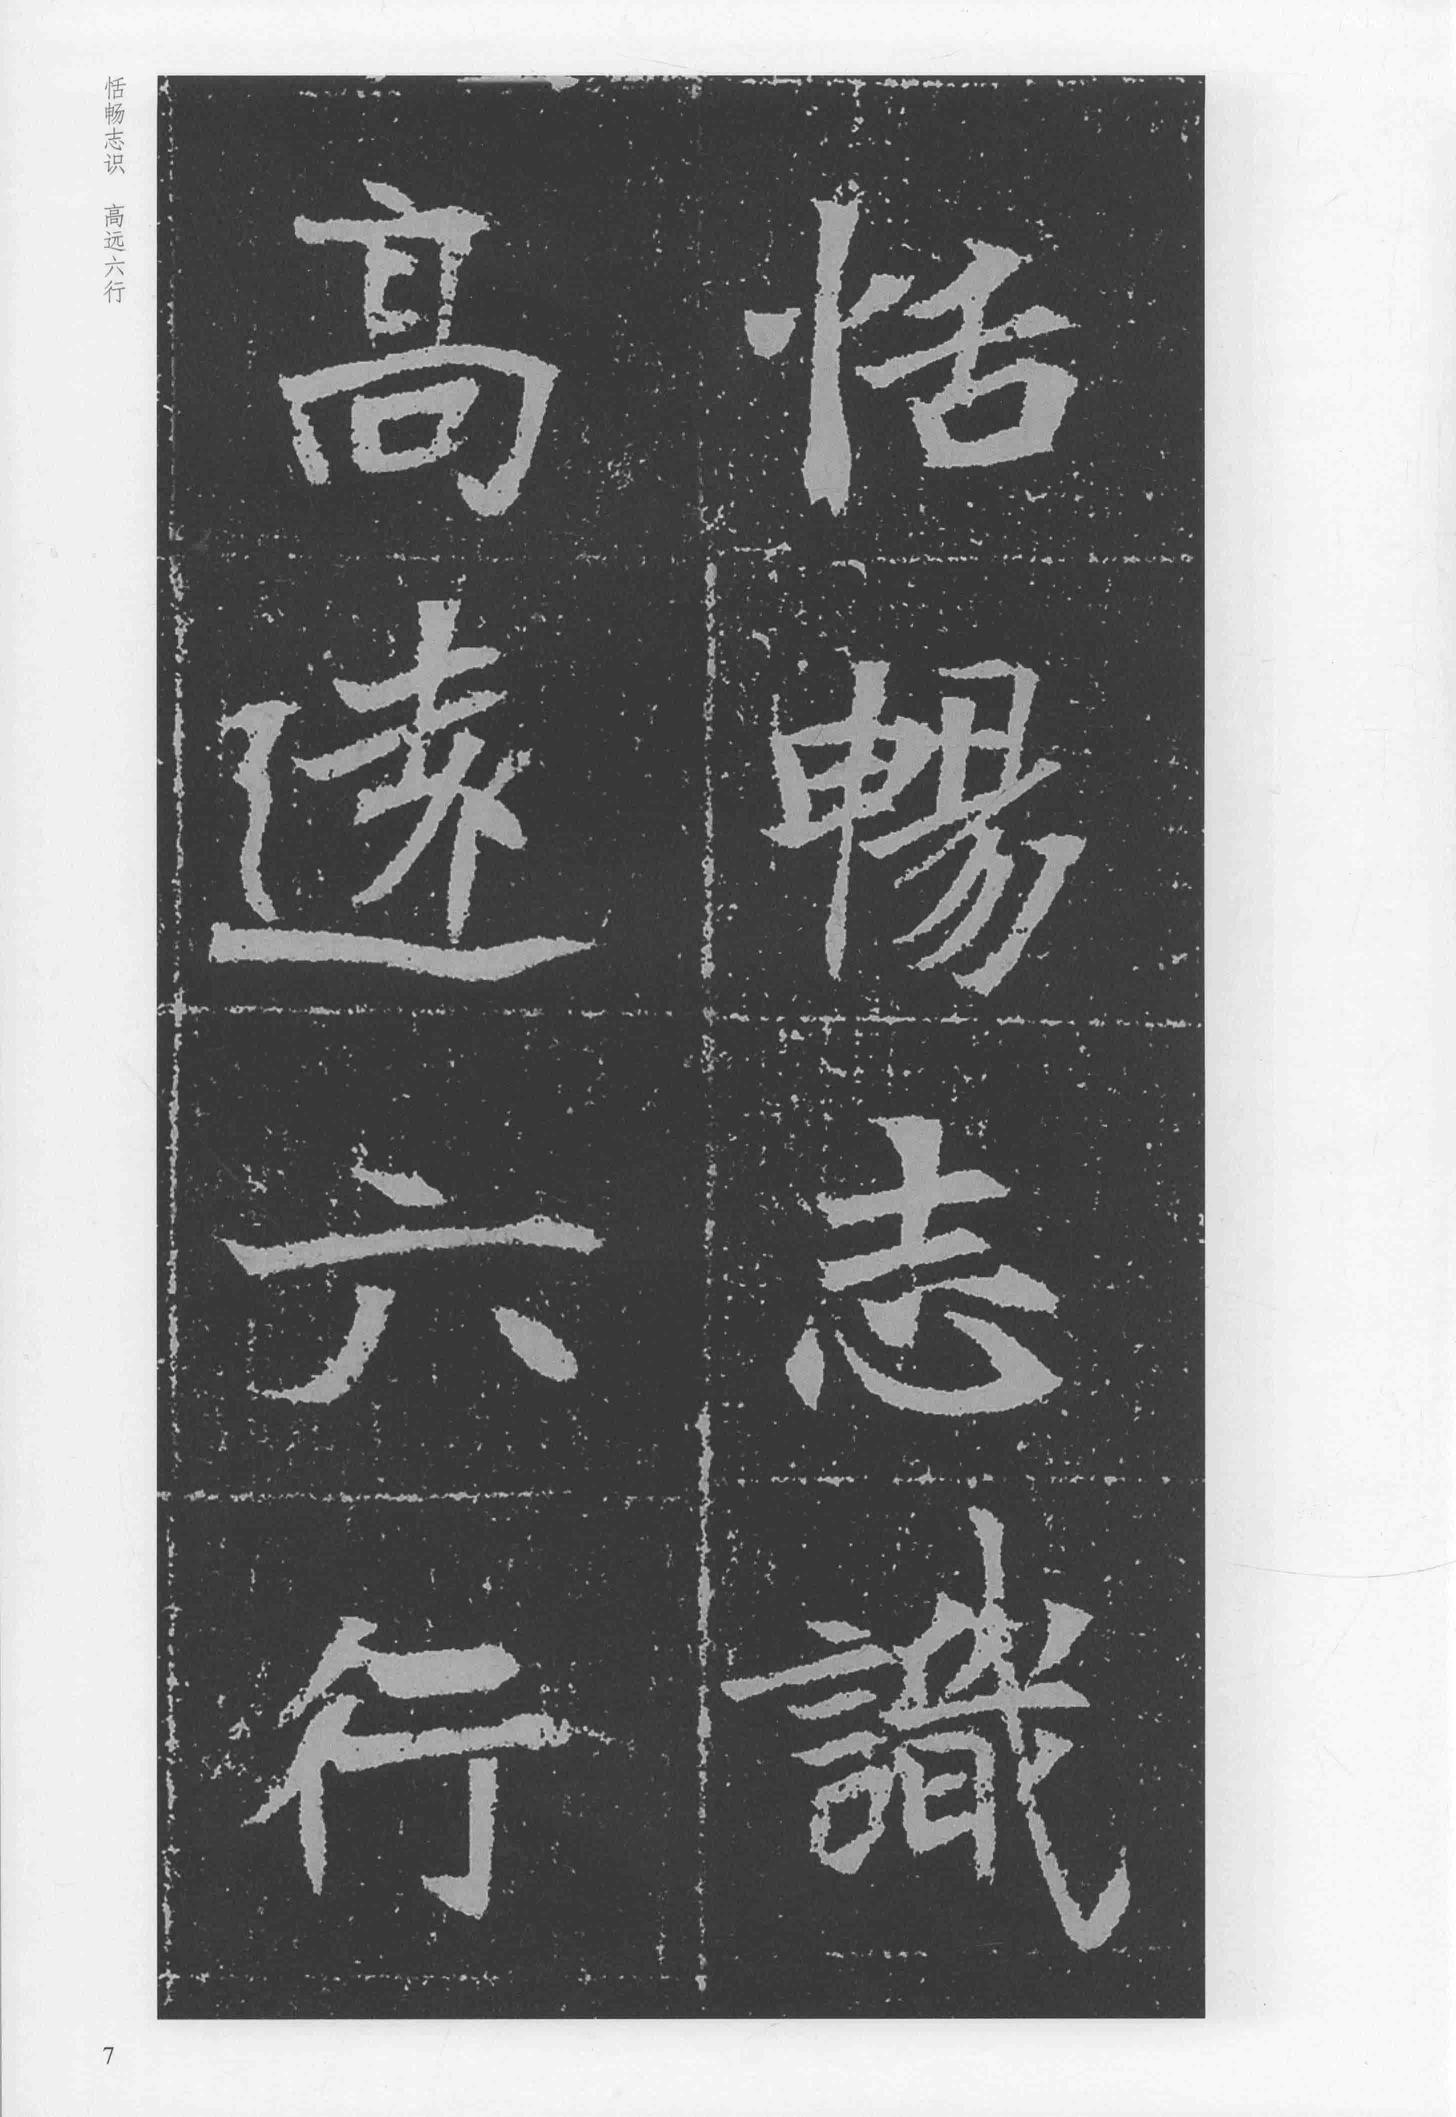 恬暢志識
高遠六行
恬畅志识 高远六行
7